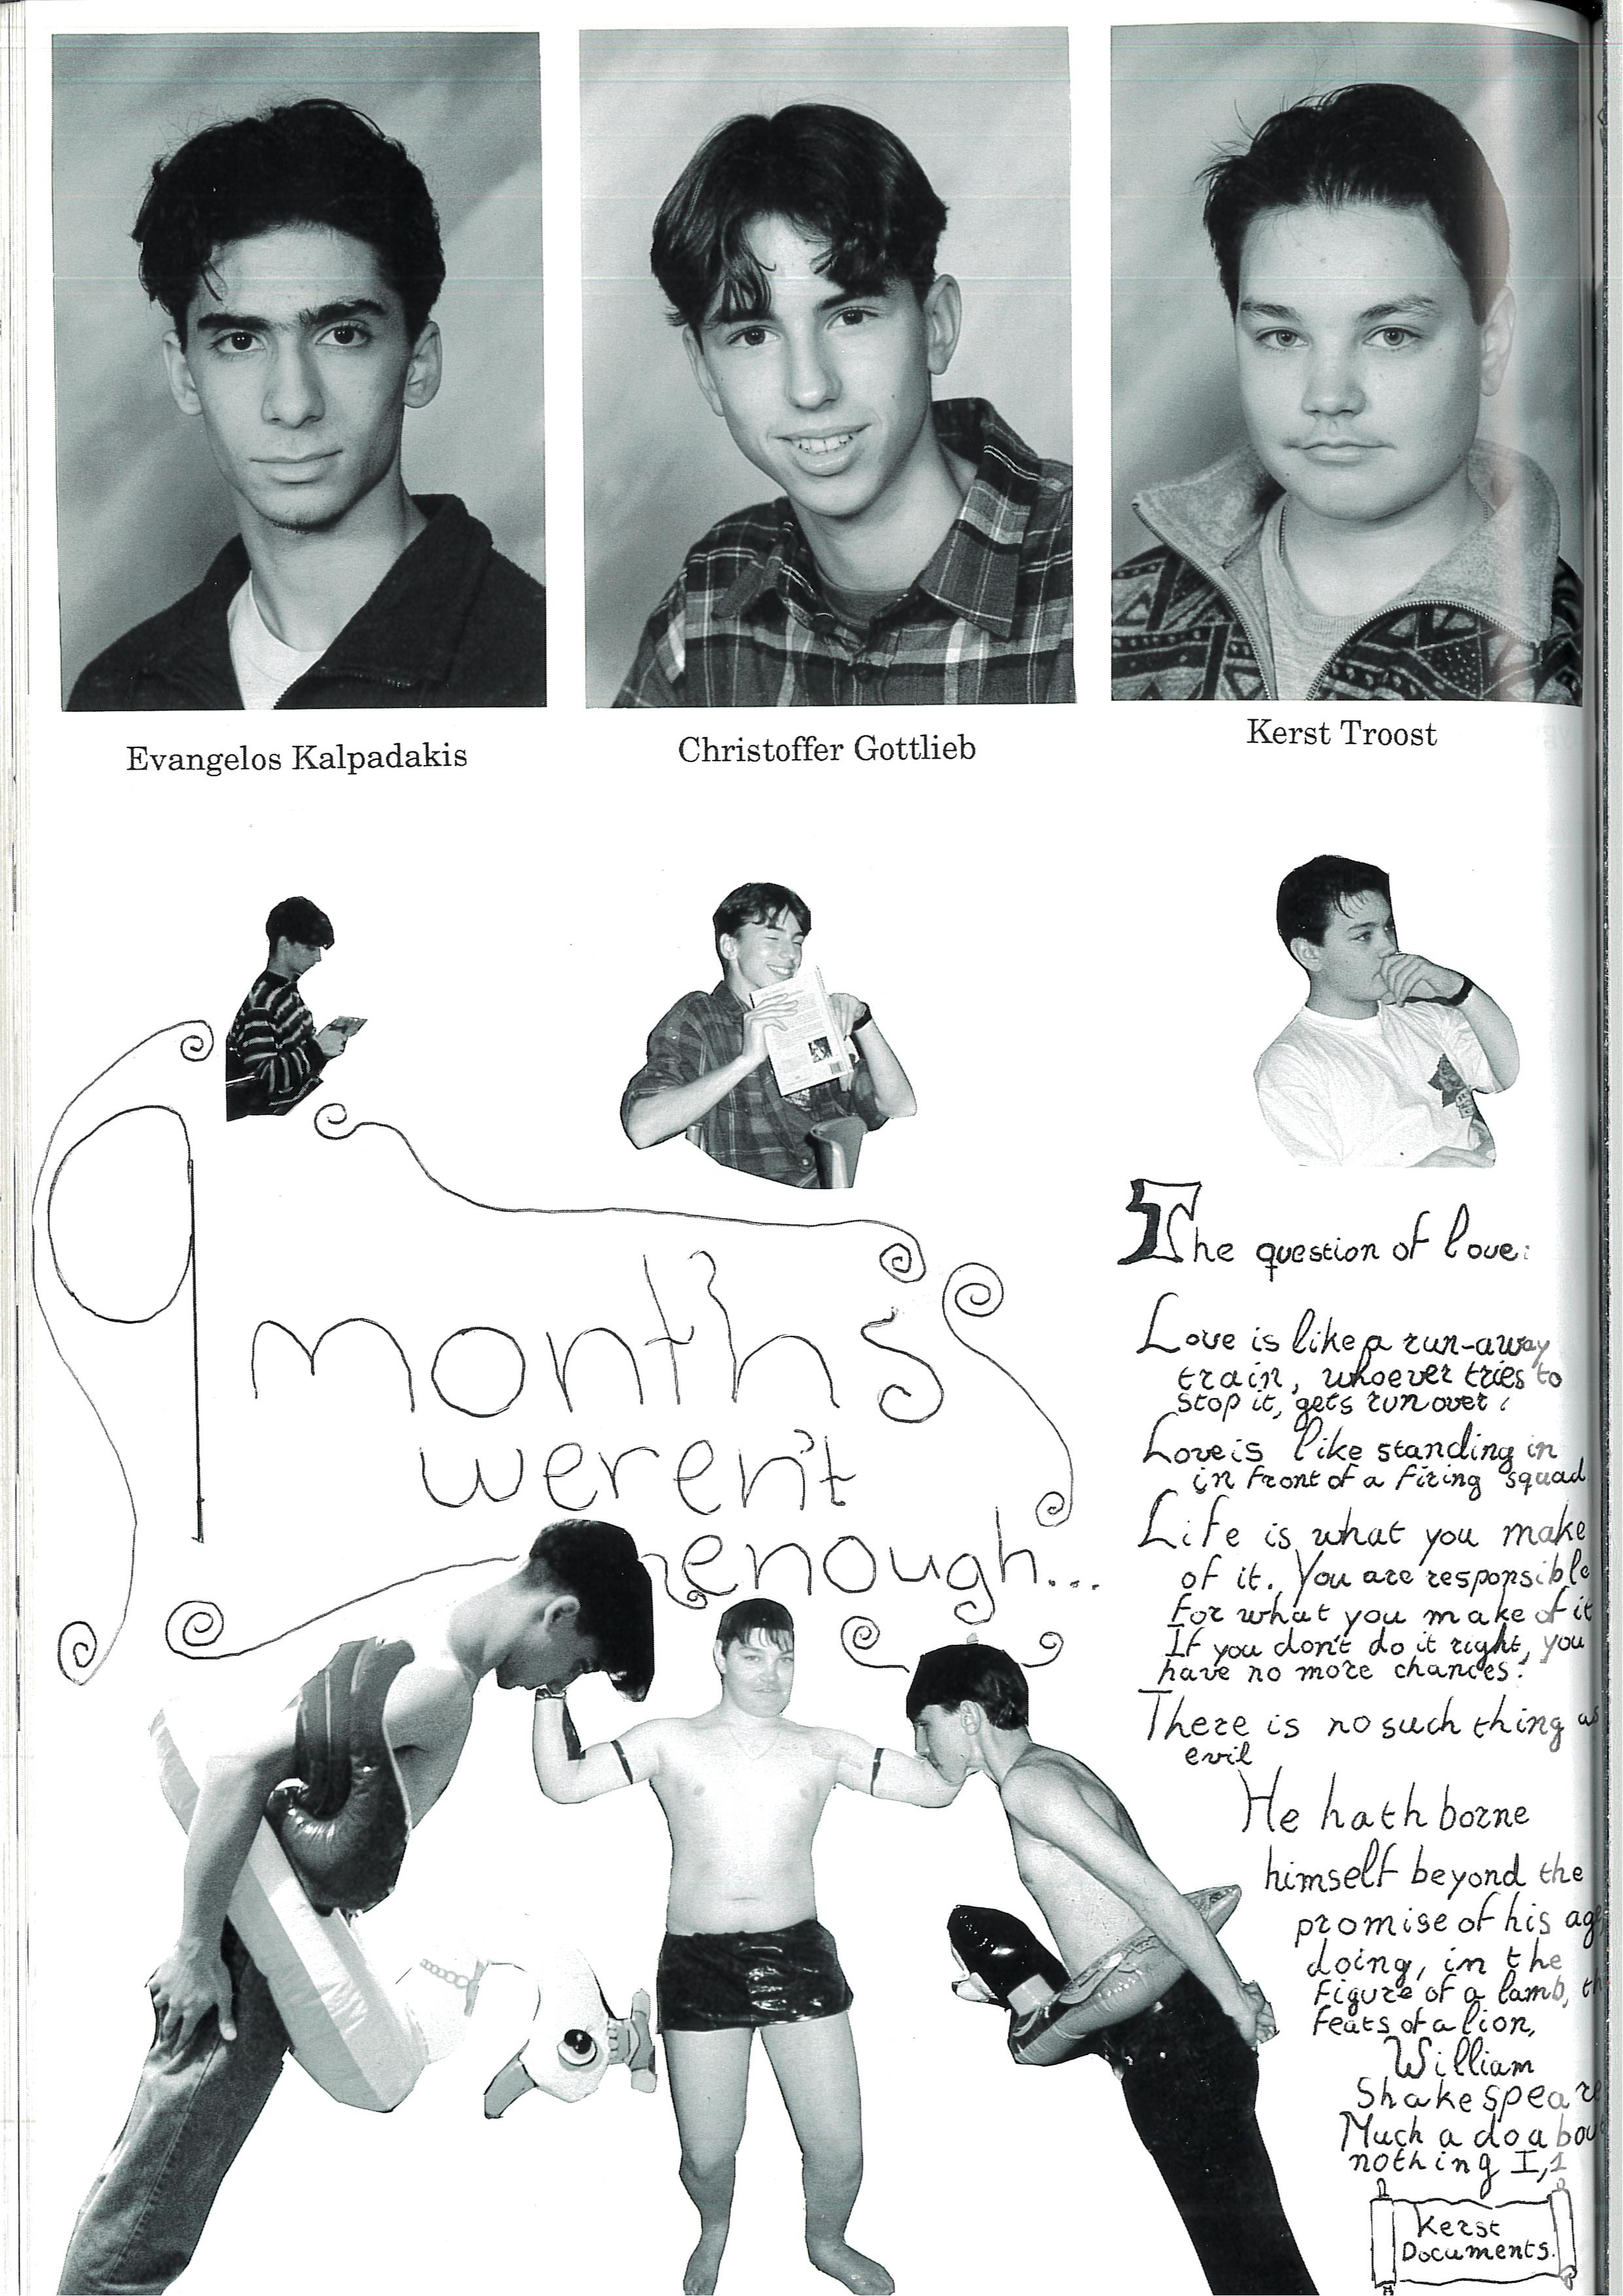 Evangelos Kalpadakis
Christoffer Gottlieb
Kerst Troost
9
months
weren't
enough...
The question of love:
Love is like a run-away
train, whoever tries to
stop it, gets run over!
Love is like standing in
in front of a firing squad
Life is what you make
of it. You are responsible
for what you make of it
If you don't do it right, you
have no more chances.
There is no such thing as
evil
He hath borne
himself beyond the
promise of his ag
doing, in the
figure of a lamb, th
feats of a lion,
William
Shakespeare
Much a do abou
nothing I,1
Kerst
Documents.